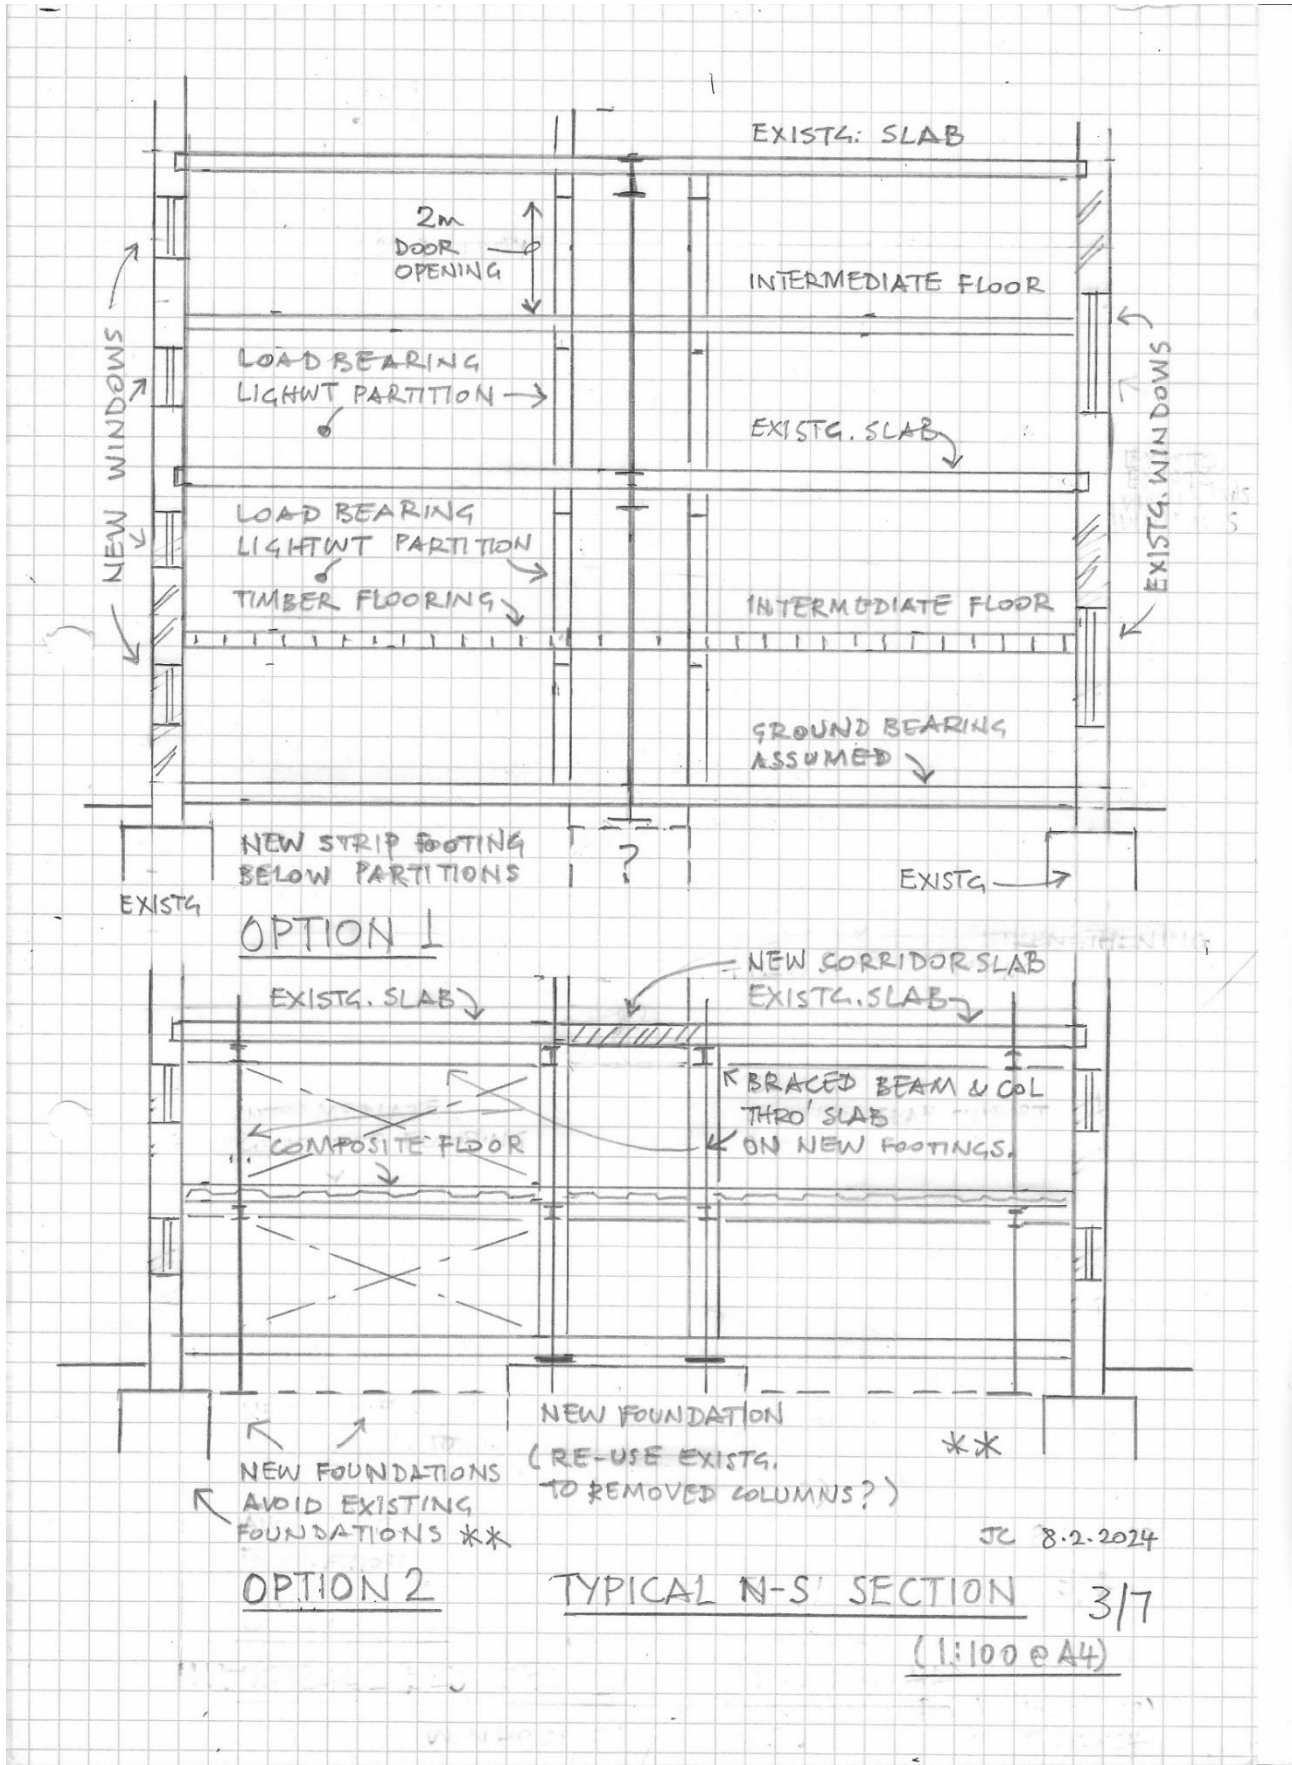 EXISTG: SLAB
2m
DOOR
OPENING
INTERMEDIATE FLOOR
NEW WINDOWS
LOAD BEARING
LIGHWT PARTITION
EXISTG. SLAB
EXISTG. WINDOWS
LOAD BEARING
LIGHTWT PARTITION
TIMBER FLOORING
INTERMEDIATE FLOOR
GROUND BEARING
ASSUMED
NEW STRIP FOOTING
BELOW PARTITIONS
?
EXISTG
EXISTG
OPTION 1
NEW CORRIDOR SLAB
EXISTG. SLAB
EXISTG. SLAB
BRACED BEAM & COL
THRO' SLAB
ON NEW FOOTINGS.
COMPOSITE FLOOR
NEW FOUNDATION
(RE-USE EXISTG.
TO REMOVED COLUMNS?)
**
NEW FOUNDATIONS
AVOID EXISTING
FOUNDATIONS **
JC 8.2.2024
OPTION 2
TYPICAL N-S SECTION
3/7
(1:100 @ A4)